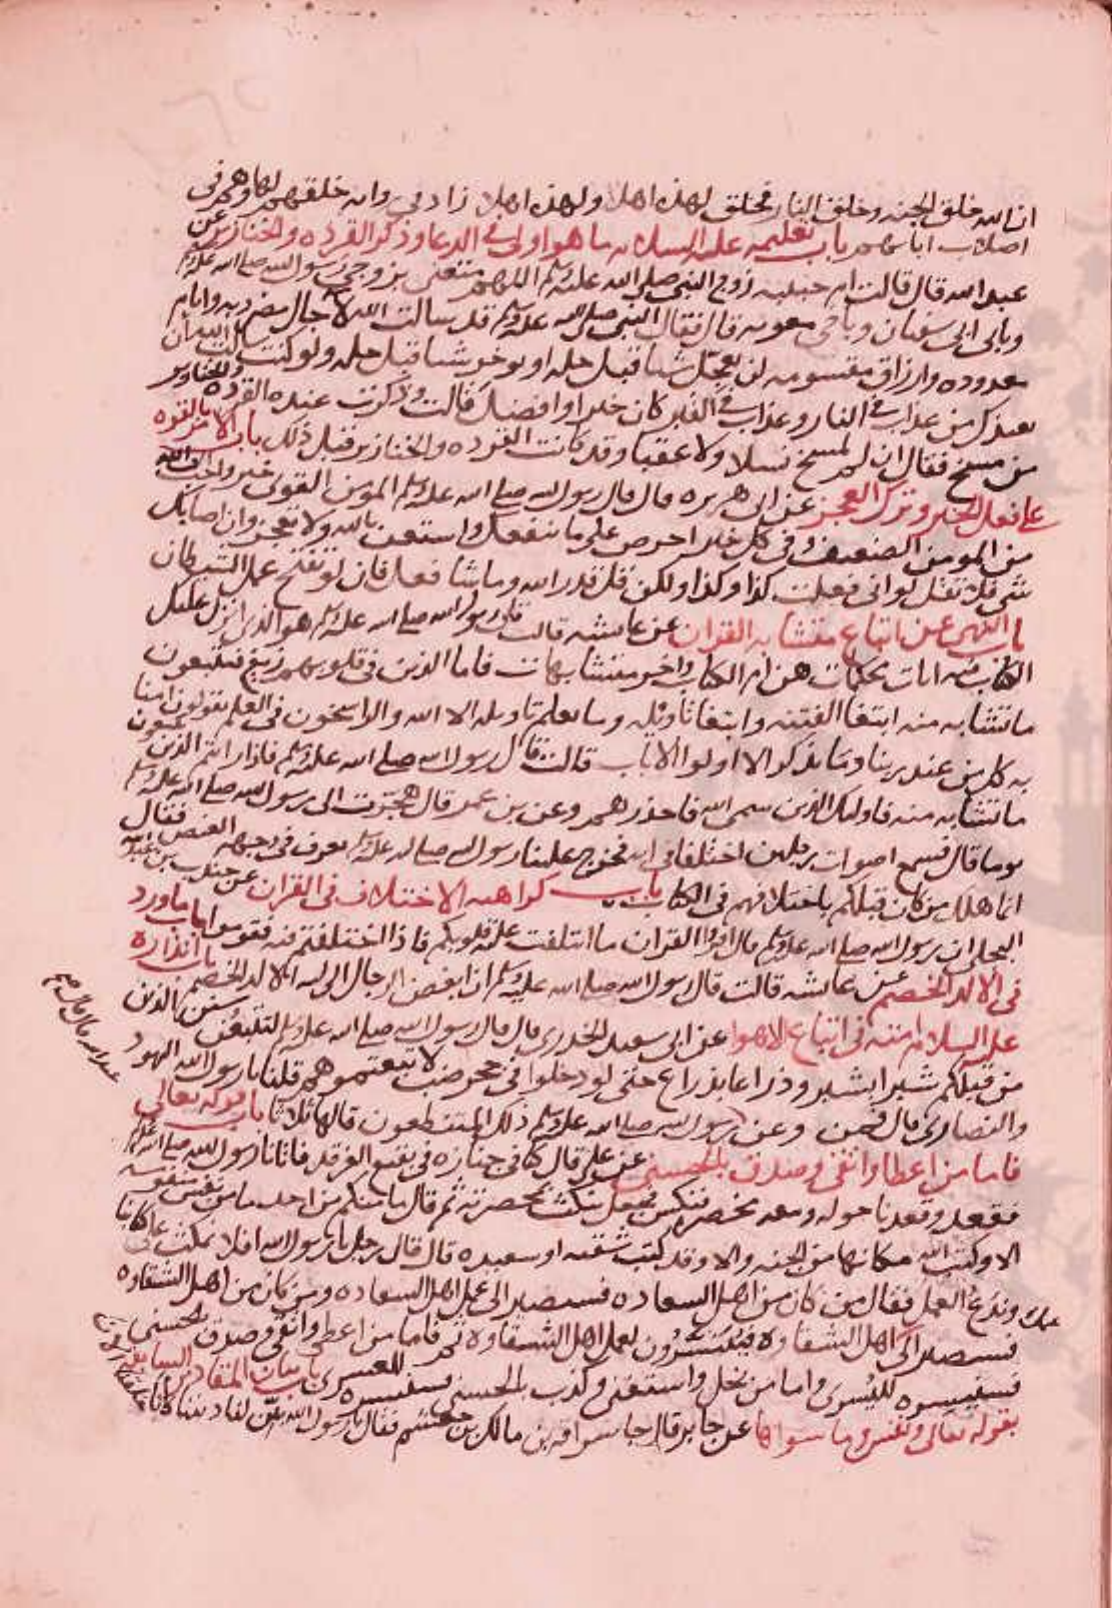 ان الله خلق الجنه وخلق النار فخلق لهذه اهلا ولهذه اهلا زاد في وانه خلقهم لها وهم في
اصلاب اباهم باب تعليمه عليه السلام ما هو اولى في الدعا وذكر القرده والخنازير عن
عبد الله قال قالت ام حبيبه زوج النبي صلى الله عليه وسلم اللهم متعني بزوجي رسول الله صلى الله عليه وسلم
وبابي ابي سفيان وباخي معويه قال فقال النبي صلى الله عليه وسلم قد سالت الله لاجال مضروبه وايام
معدوده وارزاق مقسومه لن يعجل شيا قبل حله او يوخر شيا قبل حله ولو كنت سالت الله ان
يعيذك من عذاب في النار وعذاب في القبر كان خيرا وافضل قالت وذكرت عنده القرده والخنازير
من مسخ فقال ان لم لمسخ نسلا ولا عقبا وقد كانت القرده والخنازير قبل ذلك باب الامر بالقوه
على فعل الخير وترك العجز عن ابي هريره قال قال رسول الله صلى الله عليه وسلم المومن القوي خير واحب الى الله
من المومن الضعيف وفي كل خير احرص على ما ينفعك واستعن بالله ولا تعجز وان اصابك
شي فلا تقل لو اني فعلت كذا وكذا ولكن قل قدر الله وما شا فعل فان لو تفتح عمل الشيطان
باب النهي عن اتباع متشابه القران عن عايشه قالت قال رسول الله صلى الله عليه وسلم هو الذي انزل عليك
الكتاب منه ايات محكمات هن ام الكتاب واخر متشابهات فاما الذين في قلوبهم زيغ فيتبعون
ما تشابه منه ابتغا الفتنه وابتغا تاويله وما يعلم تاويله الا الله والراسخون في العلم يقولون امنا
به كل من عند ربنا وما يذكر الا اولوا الالباب قالت فقال رسول الله صلى الله عليه وسلم فاذا رايتم الذين يتبعون
ما تشابه منه فاوليك الذين سمى الله فاحذرهم وعن بن عمر قال هجرت الى رسول الله صلى الله عليه وسلم
يوما قال فسمع اصوات رجلين اختلفا في ايه فخرج علينا رسول الله صلى الله عليه وسلم يعرف في وجهه الغضب فقال
انما هلك من كان قبلكم باختلافهم في الكتاب باب كراهيه الاختلاف في القران عن جندب بن عبد الله
البجلي ان رسول الله صلى الله عليه وسلم قال اقروا القران ما ايتلفت عليه قلوبكم فاذا اختلفتم فيه فقوموا باب ما ورد
في الالد الخصم عن عايشه قالت قال رسول الله صلى الله عليه وسلم ان ابغض الرجال الى الله الالد الخصم باب انذاره
عليه السلام امته في اتباع الاهوا عن ابي سعيد الخدري قال قال رسول الله صلى الله عليه وسلم لتتبعن سنن الذين
من قبلكم شبرا بشبر وذراعا بذراع حتى لو دخلوا في جحر ضب لاتبعتموهم قلنا يا رسول الله اليهود
والنصارى قال فمن وعن رسول الله صلى الله عليه وسلم ذلك المتنطعون قالها ثلاثا باب قوله تعالى
عبد الله قال قال
فاما من اعطا واتقى وصدق بالحسنى عن علي قال كنا في جنازه في بقيع الغرقد فاتانا رسول الله صلى الله عليه وسلم
فقعد وقعدنا حوله ومعه مخصره فنكس فجعل ينكت بمخصرته ثم قال ما منكم من احد ما من نفس منفوسه
الا وكتب الله مكانها من الجنه والا وقد كتبت شقيه او سعيده قال قال رجل يا رسول الله افلا نمكث على كتابنا
وندع العمل فقال من كان من اهل السعاده فسيصير الى عمل اهل السعاده ومن كان من اهل الشقاوه
فسيصير الى اهل الشقاوه فييسرون لعمل اهل الشقاوه ثم قرا فاما من اعطى واتقى وصدق بالحسنى
فسنيسره لليسرى واما من بخل واستغنى وكذب بالحسنى فسنيسره للعسرى باب بيان المقادير السابقه
بقوله تعالى ونفس وما سواها عن جابر قال جا سراقه بن مالك بن جعشم فقال يا رسول الله بين لنا ديننا كانا